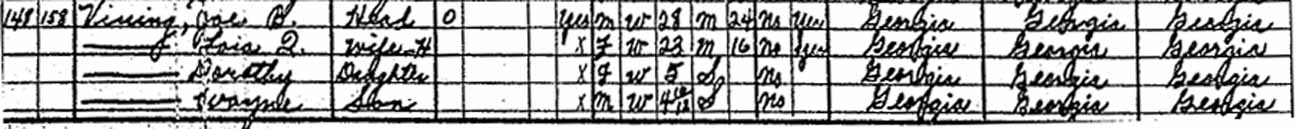 148 158 Vining, Joe B. Head O Yes M W 28 M 24 No Yes Georgia Georgia Georgia
—— Lois Q. Wife-H X F W 23 M 16 No Yes Georgia Georgia Georgia
—— Dorothy Daughter X F W 5 S No Georgia Georgia Georgia
—— Dwayne Son X M W S No Georgia Georgia Georgia